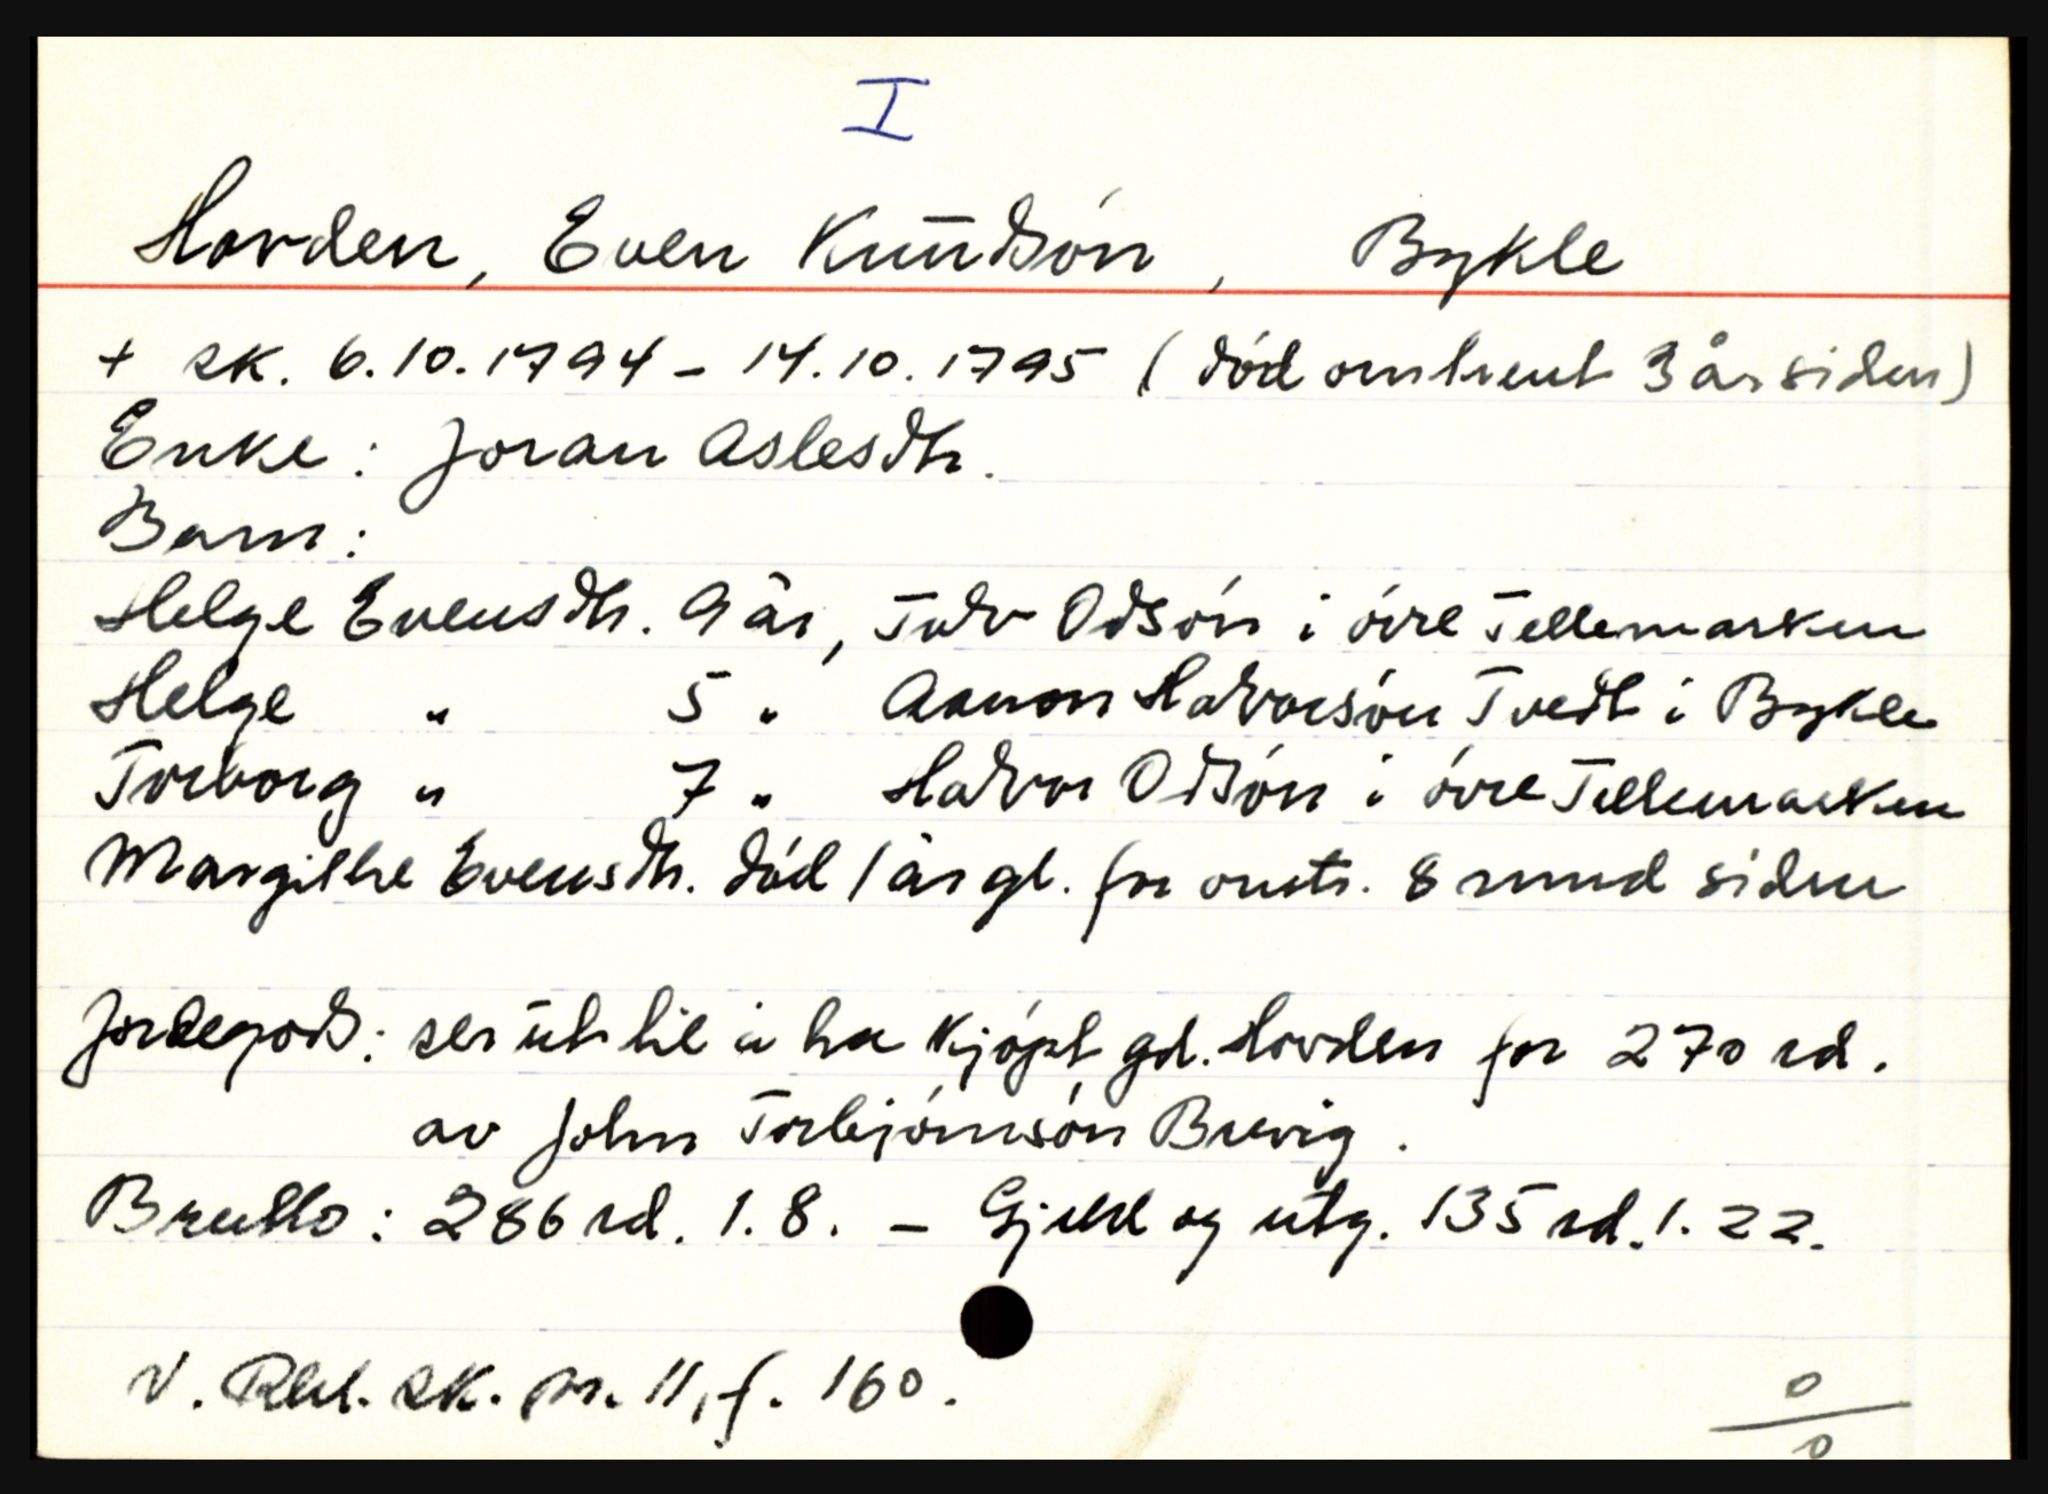 I
Hovden, Even Knudsön, Bykle
+ sk. 6.10.1794 - 14.10.1795 (död omtrent 3 år siden)
Enke: Joran Aslesdtr.
Barn:
Helge Evensdtr. 9 år, Tolv Odsön i övre Tellemarken
Helge " 5 " Aanon Halvorsön Tvedt i Bykle
Torborg " 7 " Halvor Odsön i övre Tellemarken
Margithe Evensdtr. död 1 år gl. for omtr. 8 mnd siden
Jordegods: ser ut til å ha kjöpt gd. Hovden for 270 rd.
av John Torbjörnsön Breivig.
Brutto: 286 rd. 1. 8. - Gjeld og utg. 135 rd. 1. 22.
V. Rbl. sk. pr. 11, f. 160.
0
0